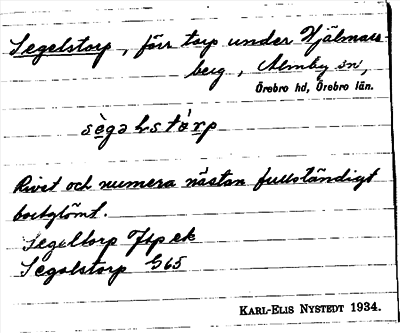 Segelstorp, förr torp under Hjälmars-
berg, Almby sn,
Örebro hd, Örebro län.
sègəlstórp
Rivet och numera nästan fullständigt
bortglömt.
Segeltorp Jtp ek
Segelstorp G65
KARL-ELIS NYSTEDT 1934.